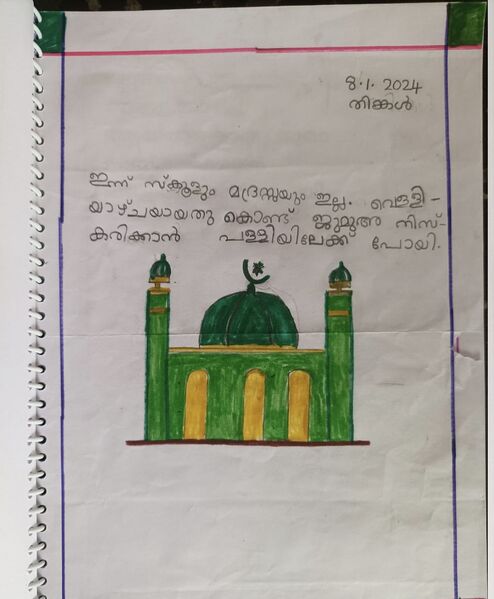 8.1.2024
തിങ്കൾ
ഇന്ന് സ്ക്കൂളും മദ്രസ്സയും ഇല്ല. വെള്ളി-
യാഴ്ചയായതു കൊണ്ട് ജുമുഅ നിസ്-
കരിക്കാൻ പള്ളിയിലേക്ക് പോയി.